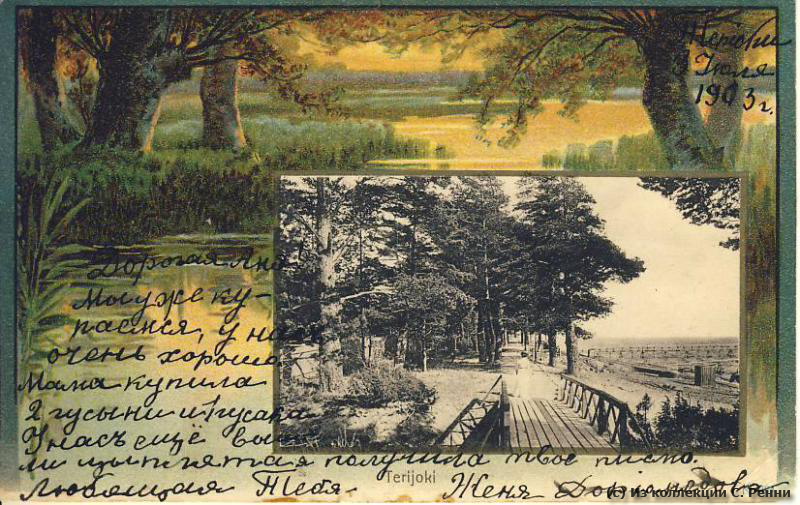 Терiоки
3 Iюля
1903 г.
Дорогая Аня!
Мы уже ку-
паемся, у насъ
очень хорошо
Мама купила
2 гусыни и 1 гусака
У насъ ещё выве
ли цыплятая получила твое письмо.
Любящая Тебя Женя
Terijoki
(c) Из коллекции С. Ренни